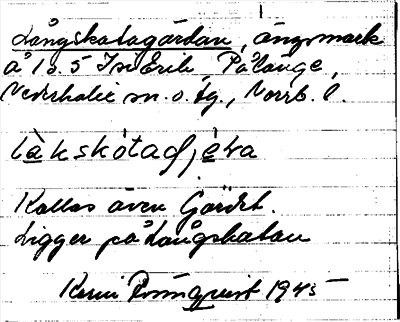 Långskatagärdan, ängsmark
å 1 o. 5 Jn Erik, Pålänge,
Nederkalix sn. o. tg., Norrb. l.
làkskòtadjèra
Kallas även Gärdet.
Ligger på Långskatan
Karin Rönnqvist 1945